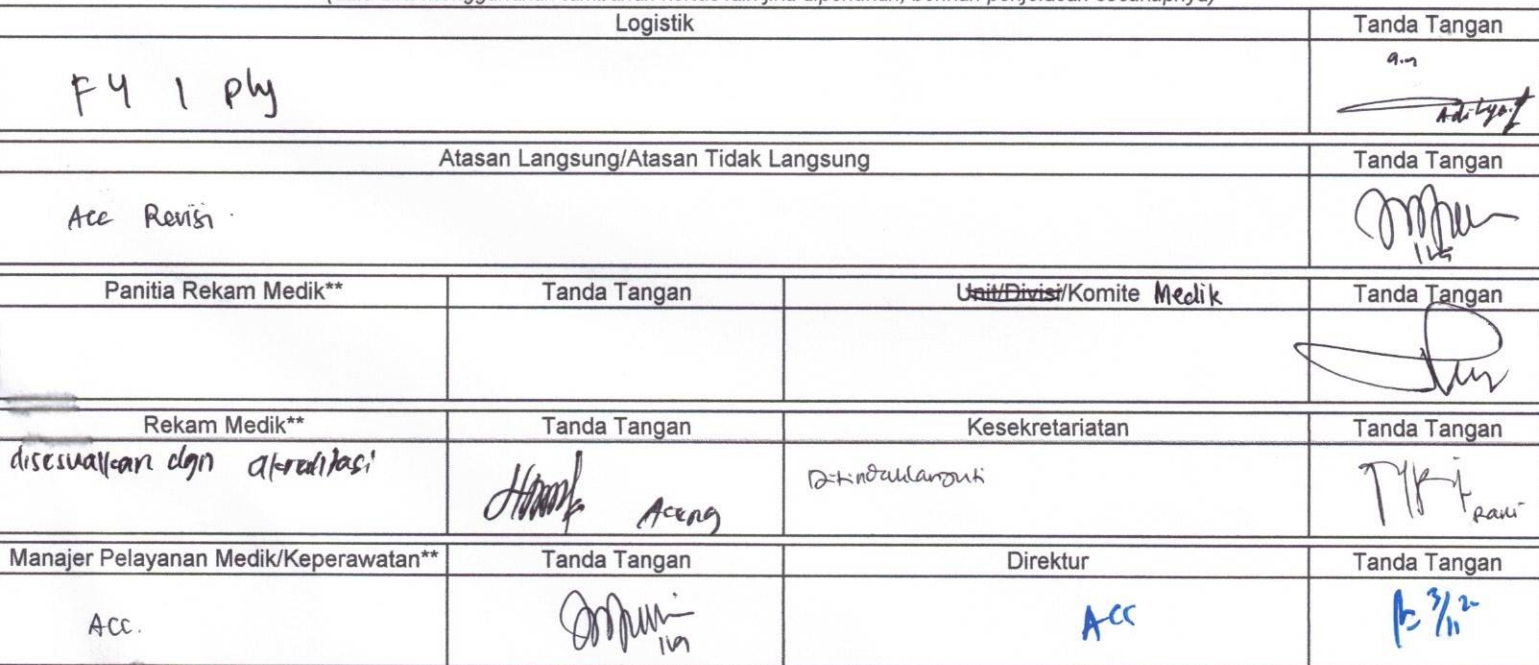 Logistik Tanda Tangan
F4 1 ply a.n
Aditya
Atasan Langsung/Atasan Tidak Langsung Tanda Tangan
Acc Revisi.
Panitia Rekam Medik** Tanda Tangan Unit/Divisi/Komite Medik Tanda Tangan
Rekam Medik** Tanda Tangan Kesekretariatan Tanda Tangan
disesuaikan dgn akreditasi Aceng Ditindaklanjuti Rani
Manajer Pelayanan Medik/Keperawatan** Tanda Tangan Direktur Tanda Tangan
ACC. ACC 3/11